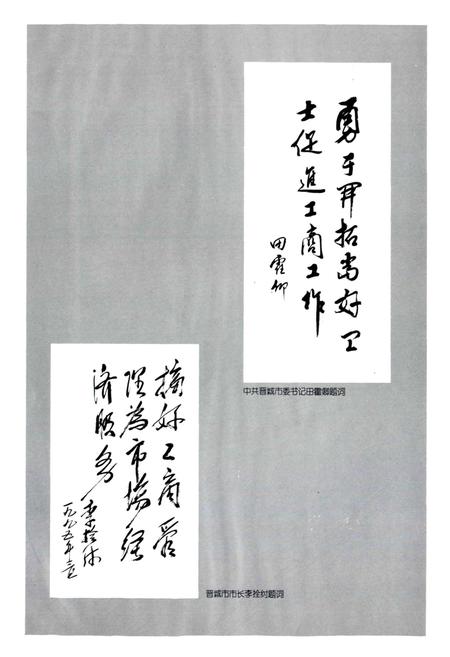 勇于開拓當好卫
士促進工商工作
田霍卿
中共晋城市委书记田霍卿题词
搞好工商管
理為市場經
濟服务
李拴纣
一九九五年
晋城市市长李拴纣题词